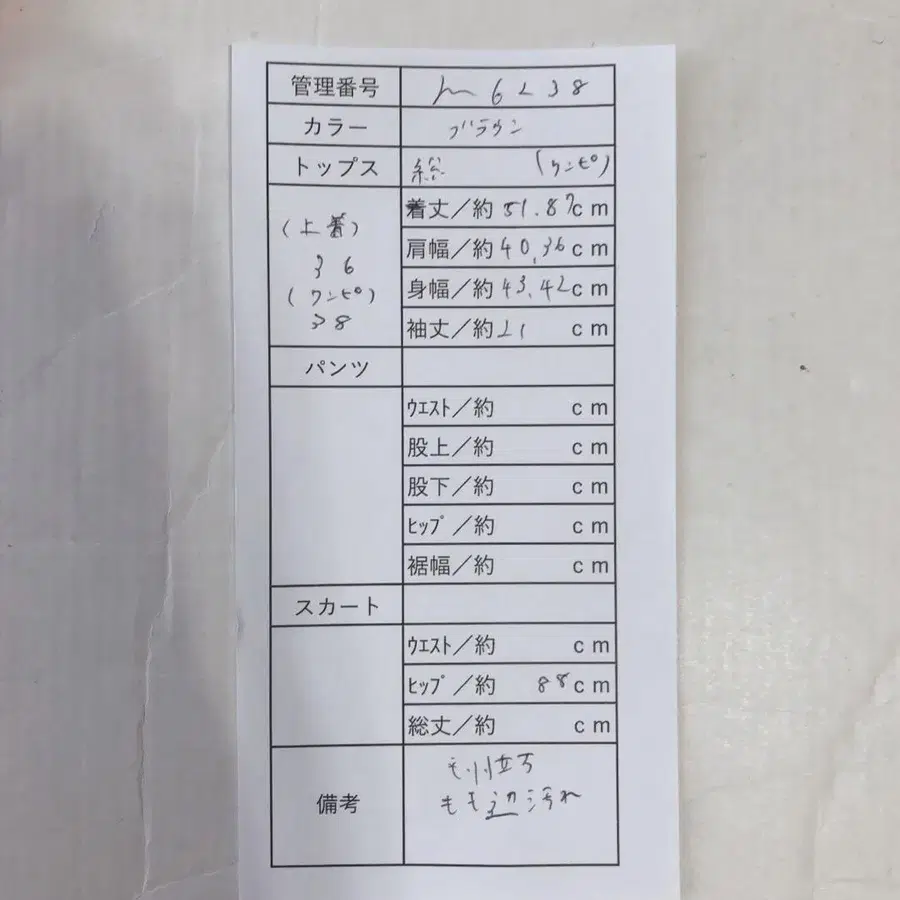 管理番号 m6238
カラー ブラウン
トップス 総 (ワンピ)
(上着)
36
(ワンピ)
38
着丈／約 51.87cm
肩幅／約 40.36cm
身幅／約 43.42cm
袖丈／約 21 cm
パンツ
ｳｴｽﾄ／約 cm
股上／約 cm
股下／約 cm
ﾋｯﾌﾟ／約 cm
裾幅／約 cm
スカート
ｳｴｽﾄ／約 cm
ﾋｯﾌﾟ／約 88cm
総丈／約 cm
備考
毛羽立ち
もも辺汚れ